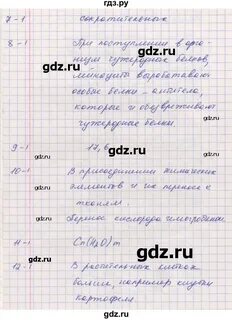 гдз.ру
7-1 сократительная
8-1 При поступлении в орга-
низм чужеродных белков,
лимфоциты вырабатывают
особые белки - антитела,
которые и обезвреживают
чужеродные белки
9-1 17,6
10-1 В присоединении химических
элементов и их переносе к
тканям.
кислорода гемоглобином.
11-1 Cn(H₂O)m
12-1 В растительных клетках
больше, например клубни
картофеля